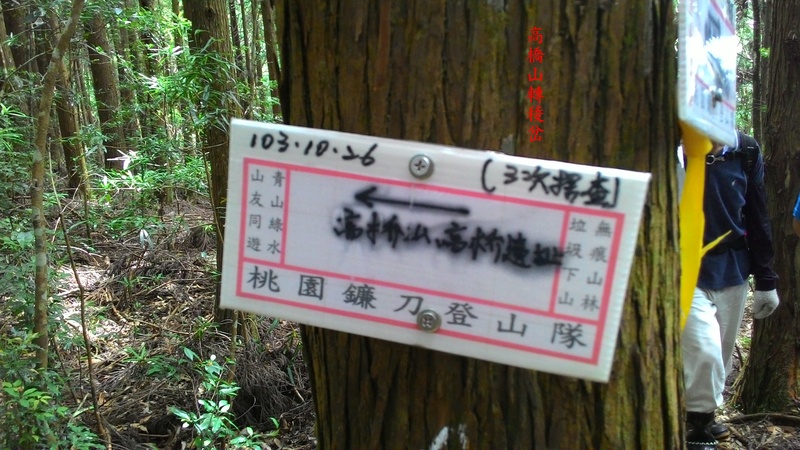 高橋山轉稜岔
103.10.26
(3次探查)
青山綠水
山友同遊
←
高橋山 高橋遺址
無痕山林
垃圾下山
桃園鐮刀登山隊